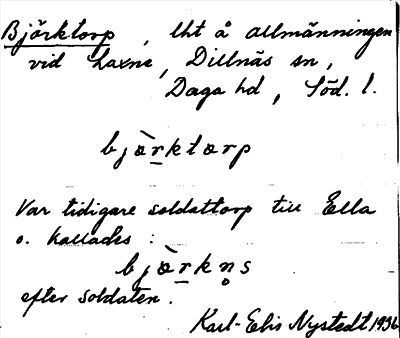 Björktorp, lht å allmänningen
vid Laxne, Dillnäs sn,
Daga hd, Söd. l.
bjærktorp
Var tidigare soldattorp till Ella
o. kallades:
bjærkn̥s
efter soldaten.
Karl-Elis Nystedt 1936